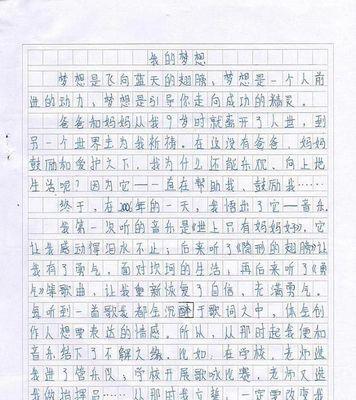 我的梦想
梦想是飞向蓝天的翅膀，梦想是一个人前
进的动力，梦想是引导你走向成功的精灵。
爸爸和妈妈从我9岁时就离开了人世，到
另一个世界去为我祈祷。在这没有爸爸，妈妈
鼓励和爱护之下，我为什么还能乐观、向上地
生活呢？因为它——直在帮助我、鼓励我……
终于，在2006年的一天，我悟出了它——音乐。
我第一次听的音乐是《世上只有妈妈好》，它
让我感动得泪水不止；后来听了《隐形的翅膀》让
我有了勇气，面对坎坷的生活；再后来听了《勇
气》等歌曲，让我重新恢复了自信，充满勇气。
每听到一首歌我都坐沉醉于歌词文中，体会创
作人想要表达的情感。所以，从那时起我便和
音乐结下了不解之缘。比如，在学校，老师选
我进了管乐队；学校开展歌咏比赛，老师又选
我做指挥员……从那时我立誓，一定要改变我